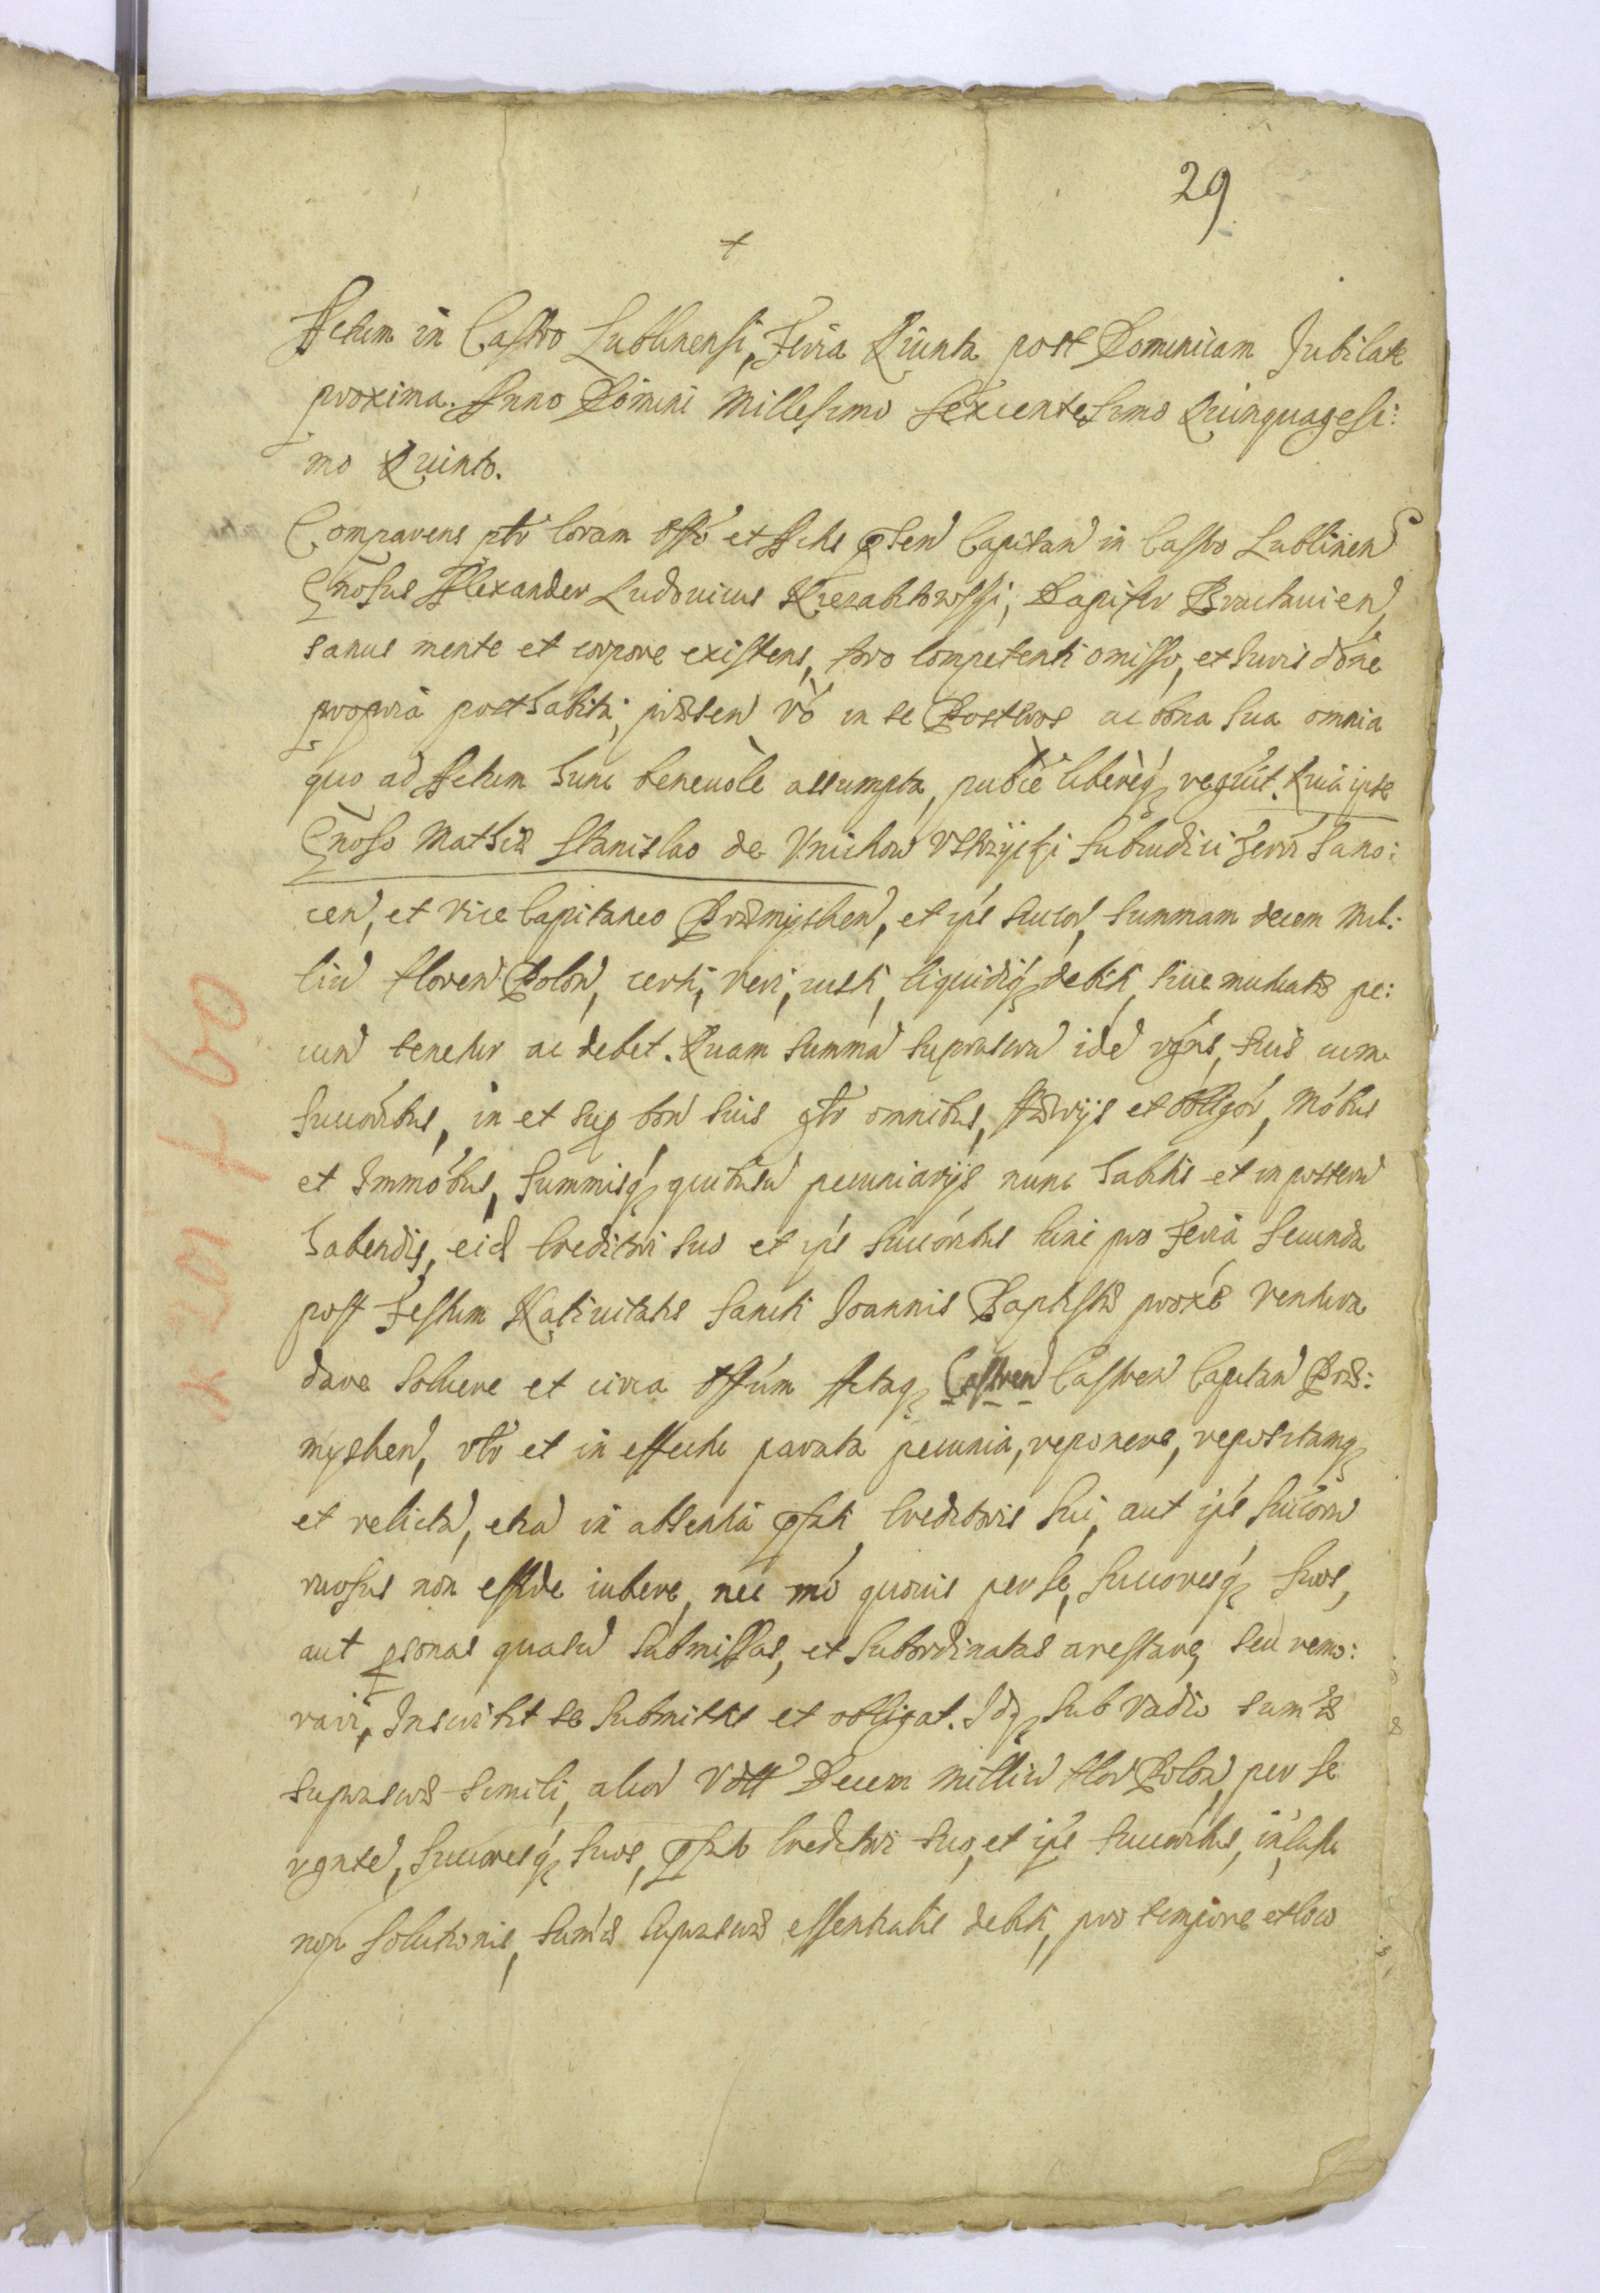 29
+
Actum in Castro Lublinensi, Feria Quinta post Dominicam Jubilate
proxima. Anno Domini Millesimo Sexcentesimo Quinquagesi:
mo Quinto.
Comparens ptr coram Offo et Actis psen Capitan in Castro Lublinen
Gnosus Alexander Ludovicus Niezabitowski, Dapifer Braclavien,
sanus mente et corpore existens, foro competenti omisso, et Iurisdone
propria posthabita, præsen vo in se Posteros ac bona sua omnia
quo ad Actum hunc benevole assumpta, publce libereq recgnt. Quia ipse
Gnoso Mathiæ Stanislao de Unichow Ustrzycki Subiudici Terr Sano:
cen, et Vice Capitaneo Præmyslien, et ips succor, summam decem Mil:
liu floren Polon, certi, veri, iusti, liquidiq debiti, sive mutuatæ pe:
cun tenetur ac debet. Quam summa suprascra ide rgns, suis cum
succoribus, in et sup bon suis gnr omnibus, hæreijs et obligor, Mobus
et Immobus, summisq quibusu pecuniarijs nunc habitis et in posteru
habendis, eid Creditori suo et ips succoribus hinc pro Feria Secunda
post Festum Nativitatis Sancti Joannis Baptistæ proxe ventura
dare solvere et circa Offum Actaq Castren Capitan Præ:
myslien, rtr et in effectu parata pecunia, reponere, repositamq
et relicta, etia in absentia psati Creditoris sui, aut ips succoru
rursus non exinde iubere, nec mo quovis per se, succoresq suos,
aut psonas quasu submissas, et subordinatas arestare, seu remo:
rari, Inscribit se submittit et obligat. Idq sub vadio sumæ
suprascræ simili, alior Vott Decem Milliu flor Polon, per se
rgnte, succoresq suos, psato Creditori suo, et ips succoribus, in casu
non solutionis, sumæ suprascræ essentialis debiti, pro tempore et loco